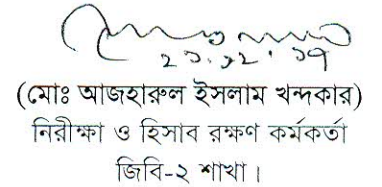 ২১.১২.১৭
(মোঃ আজহারুল ইসলাম খন্দকার)
নিরীক্ষা ও হিসাব রক্ষণ কর্মকর্তা
জিবি-২ শাখা।